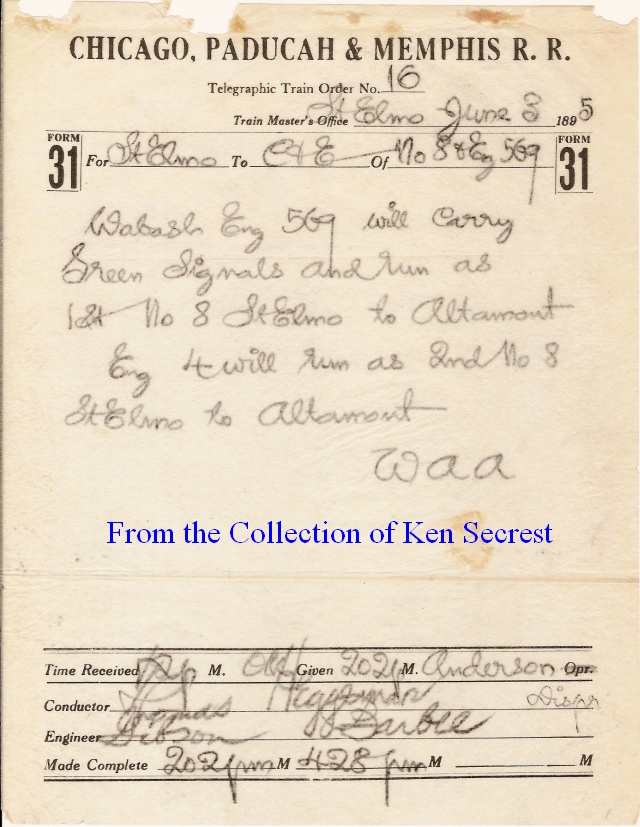 CHICAGO, PADUCAH & MEMPHIS R. R.
Telegraphic Train Order No. 16
Train Master's Office St Elmo June 3 1895
FORM 31 For St Elmo To C&E Of No 8 & Eng 569 FORM 31
Wabash Eng 569 will carry
Green Signals and run as
1st No 8 St Elmo to Altamont
Eng 4 will run as 2nd No 8
St Elmo to Altamont
WAA
From the Collection of Ken Secrest
Time Received M. OK Given 202p M. Anderson Opr.
Conductor Thomas Disptr
Engineer Gibson Barbee
Made Complete 202pm M 428pm M M